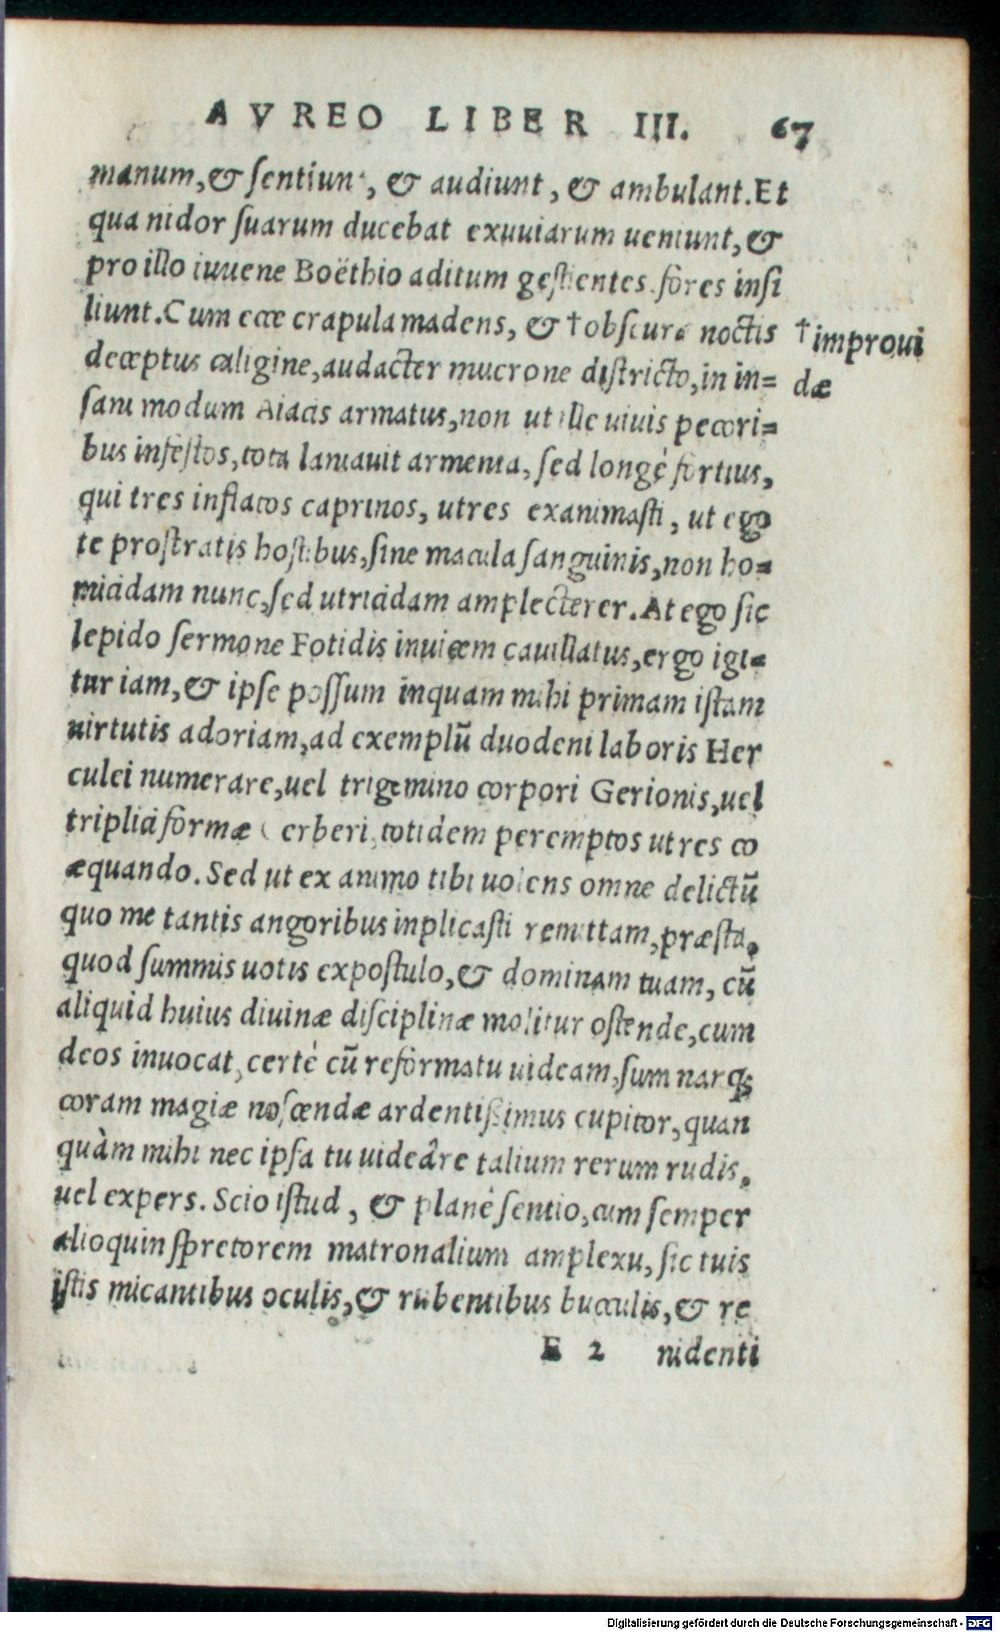 AVREO LIBER III. 67
manum, & sentiun, & audiunt, & ambulant. Et
qua nidor suarum ducebat exuuiarum ueniunt, &
pro illo iuuene Boëthio aditum gestientes fores insi
liunt. Cum ecce crapula madens, & †obscura noctis
†improui
deceptus caligine, audacter mucrone districto, in in=
dæ
sani modum Aiacis armatus, non ut ille uiuis pecori=
bus infestos, tota laniauit armenta, sed longè fortius,
qui tres inflatos caprinos, utres exanimasti, ut ego
te prostratis hostibus, sine macula sanguinis, non ho=
micidam nunc, sed utricidam amplecterer. At ego sic
lepido sermone Fotidis inuicem cauillatus, ergo igi=
tur iam, & ipse possum inquam mihi primam istam
uirtutis adoriam, ad exemplū duodeni laboris Her
culei numerare, uel trigemino corpori Gerionis, uel
triplici formæ Cerberi, totidem peremptos utres co
æquando. Sed ut ex animo tibi uolens omne delictū
quo me tantis angoribus inplicasti remittam, præsta,
quod summis uotis expostulo, & dominam tuam, cū
aliquid huius diuinæ disciplinæ molitur ostende, cum
deos inuocat, certè cū reformatu uideam, sum narq;
coram magiæ noscendæ ardentissimus cupitor, quan
quàm mihi nec ipsa tu uideâre talium rerum rudis,
uel expers. Scio istud, & planè sentio, cum semper
alioquin spretorem matronalium amplexu, sic tuis
istis micantibus oculis, & rubentibus bucculis, & re
E 2 nidenti
Digitalisierung gefördert durch die Deutsche Forschungsgemeinschaft - DFG